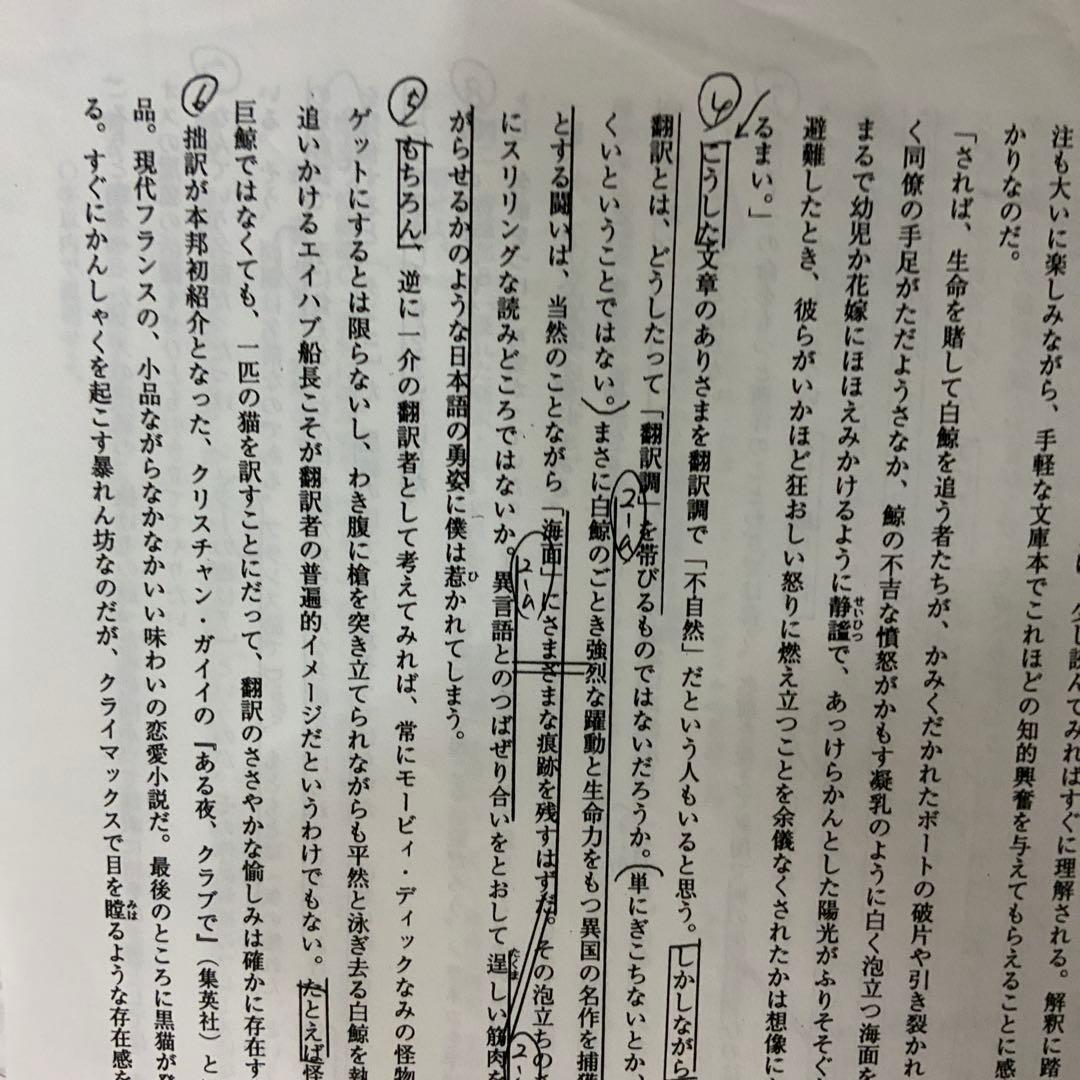 少し読んでみればすぐに理解される。解釈に踏
注も大いに楽しみながら、手軽な文庫本でこれほどの知的興奮を与えてもらえることに感
かりなのだ。
「されば、生命を賭して白鯨を追う者たちが、かみくだかれたボートの破片や引き裂かれ
く同僚の手足がただようさなか、鯨の不吉な憤怒がかもす凝乳のように白く泡立つ海面を
まるで幼児か花嫁にほほえみかけるように静謐で、あっけらかんとした陽光がふりそそぐ
せいひつ
避難したとき、彼らがいかほど狂おしい怒りに燃え立つことを余儀なくされたかは想像に
るまい。」
④ こうした文章のありさまを翻訳調で「不自然」だという人もいると思う。しかしながら
翻訳とは、どうしたって「翻訳調」を帯びるものではないだろうか。(単にぎこちないとか、
2-a
くいということではない。)まさに白鯨のごとき強烈な躍動と生命力をもつ異国の名作を捕獲
とする闘いは、当然のことながら「海面」にさまざまな痕跡を残すはずだ。その泡立ちの
2-a
にスリリングな読みどころではないか。異言語とのつばぜり合いをとおして逞しい筋肉を
たくま
2-
がらせるかのような日本語の勇姿に僕は惹かれてしまう。
ひ
⑤ もちろん、逆に一介の翻訳者として考えてみれば、常にモービィ・ディックなみの怪物
ゲットにするとは限らないし、わき腹に槍を突き立てられながらも平然と泳ぎ去る白鯨を執
追いかけるエイハブ船長こそが翻訳者の普遍的イメージだというわけでもない。たとえば怪
巨鯨ではなくても、一匹の猫を訳すことにだって、翻訳のささやかな愉しみは確かに存在す
⑥ 拙訳が本邦初紹介となった、クリスチャン・ガイイの『ある夜、クラブで』(集英社)と
品。現代フランスの、小品ながらなかなかいい味わいの恋愛小説だ。最後のところに黒猫が登
る。すぐにかんしゃくを起こす暴れん坊なのだが、クライマックスで目を瞠るような存在感を
みは